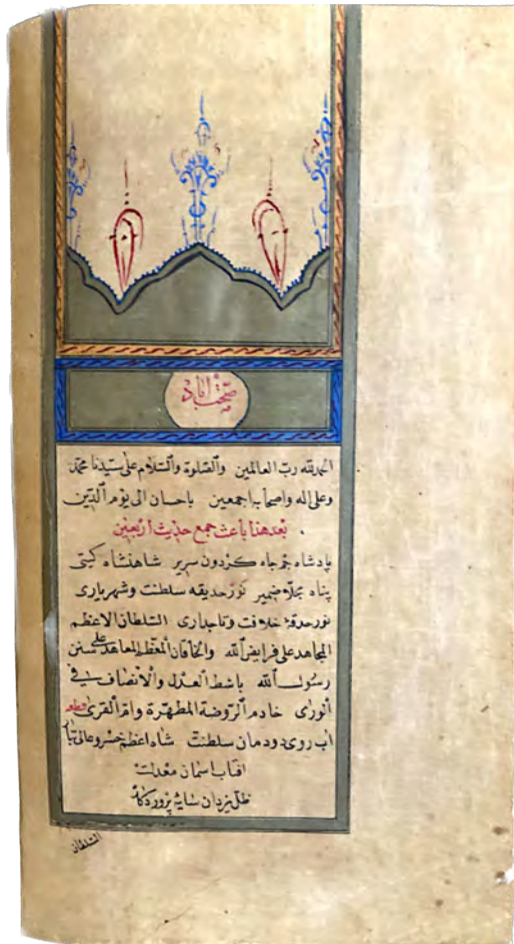 صحت آباد
الحمد لله رب العالمين والصلوة والسلام على سيدنا محمد
وعلى اله واصحابه اجمعين باحسان الى يوم الدين
بعد هذا باعث جمع حديث اربعين
پادشاه جم جاه كردون سرير شاهنشاه كيتى
پناه مجلا ضمير نور حديقه سلطنت وشهريارى
نور حدقۀ خلافت وتاجدارى السلطان الاعظم
المجاهد على فرايض الله والخاقان المعظم المعاهد على سنن
رسول الله باسط العدل والانصاف فى
الورى خادم الروضة المطهرة وام القرى قطعه
اب روى دودمان سلطنت شاه اعظم خسرو عالى تبار
افتاب اسمان معدلت
ظل يزدان سايۀ پروردكار
السلطان